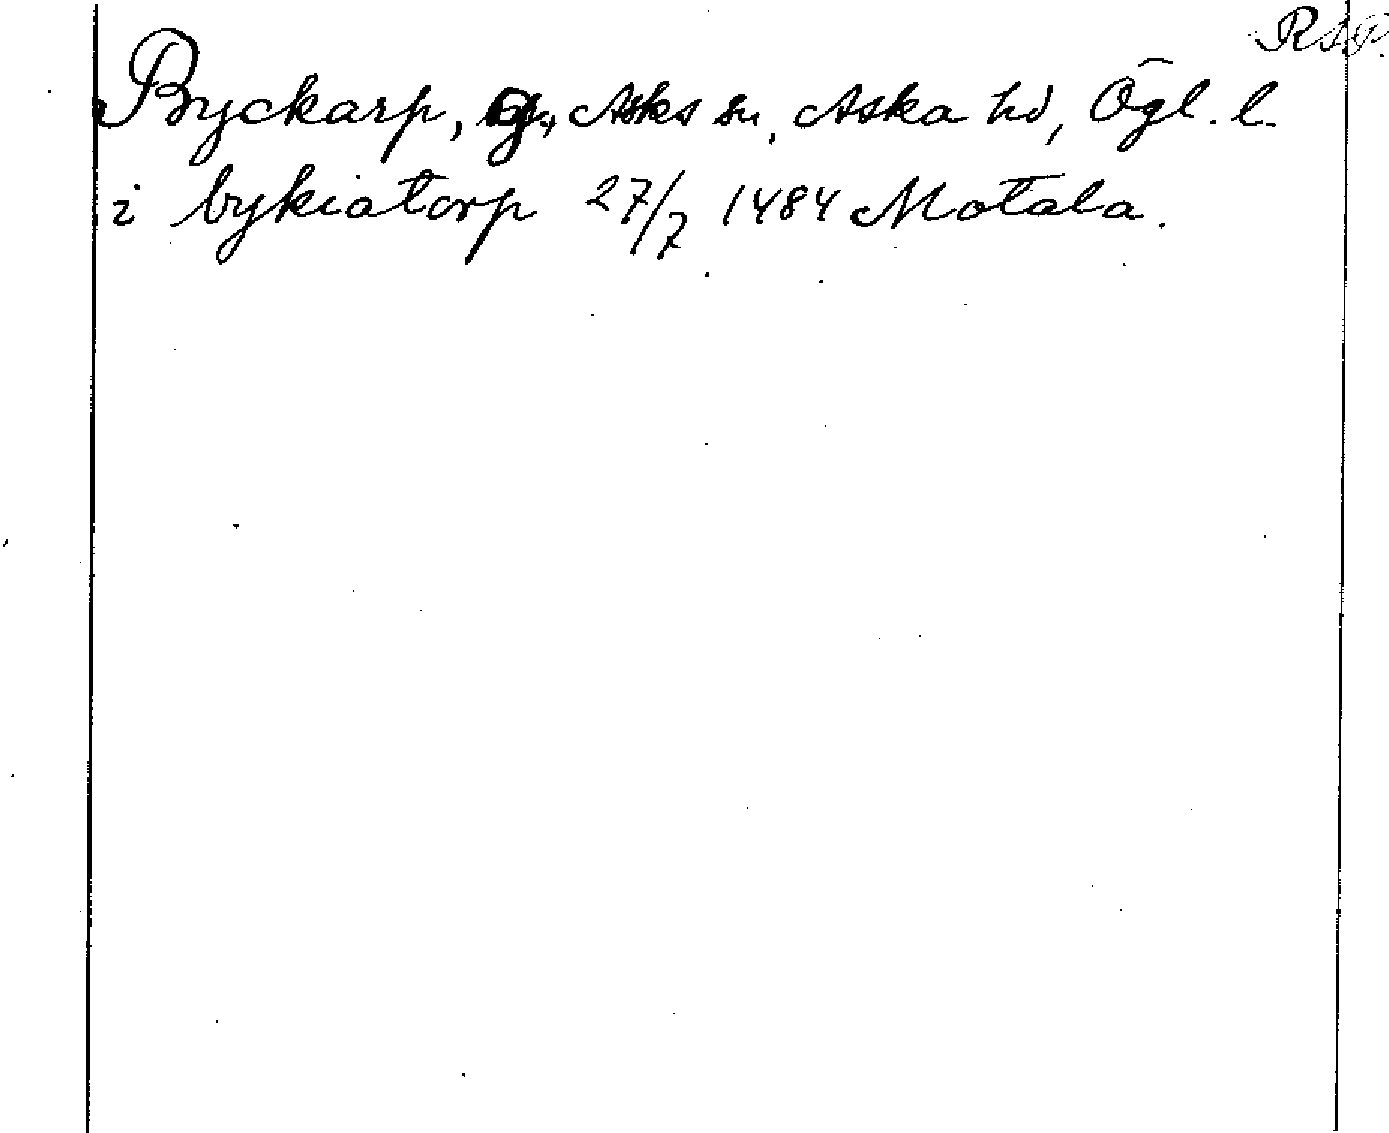 RAP.
Byckarp, g., Asks sn, Aska hd, Ögl. l.
i bykiatorp 27/7 1484 Motala.